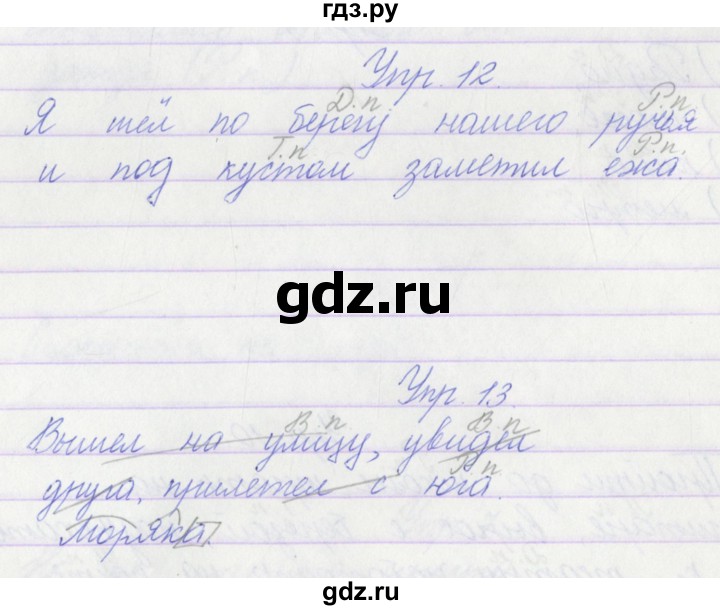 гдз.ру
Упр. 12.
Д.п Р.п
Я шёл по берегу нашего ручья
Т.п Р.п.
и под кустом заметил ежа.
gdz.ru
Упр. 13
В.п В.п
Вышел на улицу, увидел
Р.п
друга, прилетел с юга.
Моряка.
gdz.ru